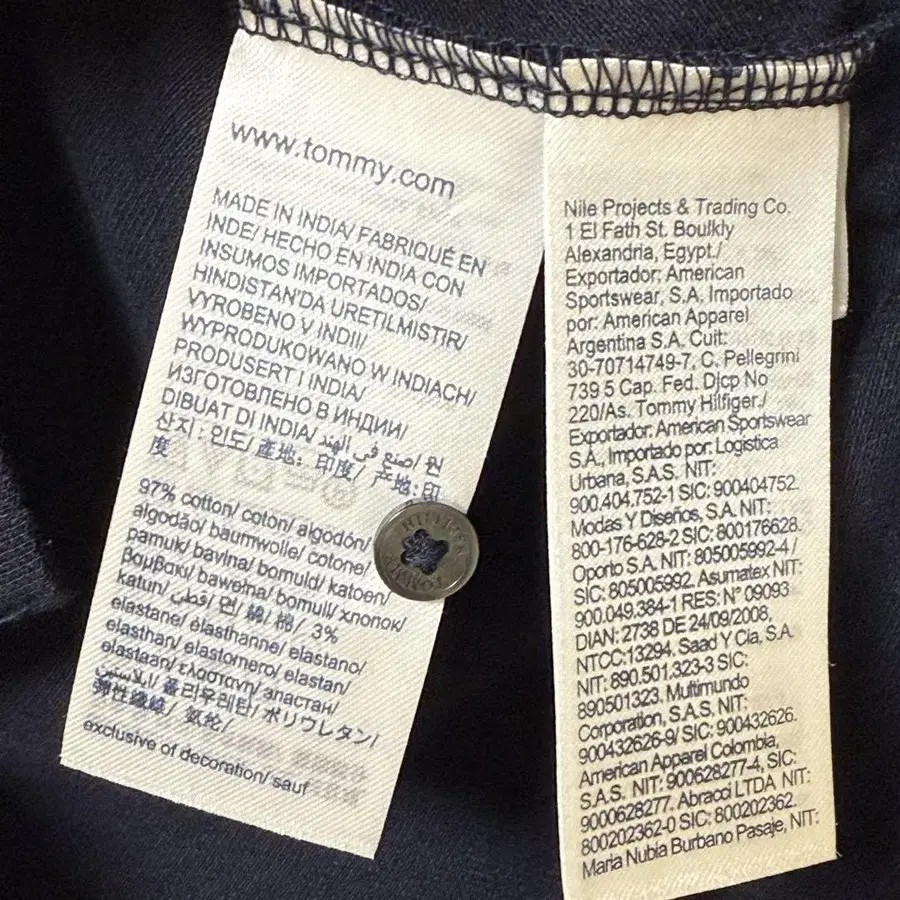 www.tommy.com
MADE IN INDIA/ FABRIQUÉ EN
INDE/ HECHO EN INDIA CON
INSUMOS IMPORTADOS/
HINDISTAN'DA URETILMISTIR/
VYROBENO V INDII/
WYPRODUKOWANO W INDIACH/
PRODUSERT I INDIA/
ИЗГОТОВЛЕНО В ИНДИИ/
DIBUAT DI INDIA/ صنع في الهند/ 원
산지: 인도/ 產地: 印度/ 产地: 印
度
97% cotton/ coton/ algodón/
algodão/ baumwolle/ cotone/
pamuk/ bavlna/ bomuld/ katoen/
βαμβακι/ bawełna/ bomull/ хлопок/
katun/ قطن/ 면/ 綿/ 棉/ 3%
elastane/ élasthanne/ elastano/
elasthan/ elastomero/ elastan/
elastaan/ ελασταvη/ эластан/
الاستين/ 폴리우레탄/ ポリウレタン/
彈性纖維/ 氨纶/
exclusive of decoration/ sauf
HILFIGER
TOMMY
Nile Projects & Trading Co.
1 El Fath St. Boulkly
Alexandria, Egypt./
Exportador: American
Sportswear, S.A. Importado
por: American Apparel
Argentina S.A. Cuit:
30-70714749-7, C. Pellegrini
739 5 Cap. Fed. DJcp No
220/As. Tommy Hilfiger./
Exportador: American Sportswear
S.A., Importado por: Logistica
Urbana, S.A.S. NIT:
900.404.752-1 SIC: 900404752.
Modas Y Diseños, S.A. NIT:
800-176-628-2 SIC: 800176628.
Oporto S.A. NIT: 805005992-4 /
SIC: 805005992. Asumatex NIT:
900.049.384-1 RES: N° 09093
DIAN: 2738 DE 24/09/2008,
NTCC:13294. Saad Y Cia, S.A.
NIT: 890.501.323-3 SIC:
890501323. Multimundo
Corporation, S.A.S. NIT:
900432626-9/ SIC: 900432626.
American Apparel Colombia,
S.A.S. NIT: 900628277-4, SIC:
9000628277. Abracci LTDA NIT:
800202362-0 SIC: 800202362.
Maria Nubia Burbano Pasaje, NIT: